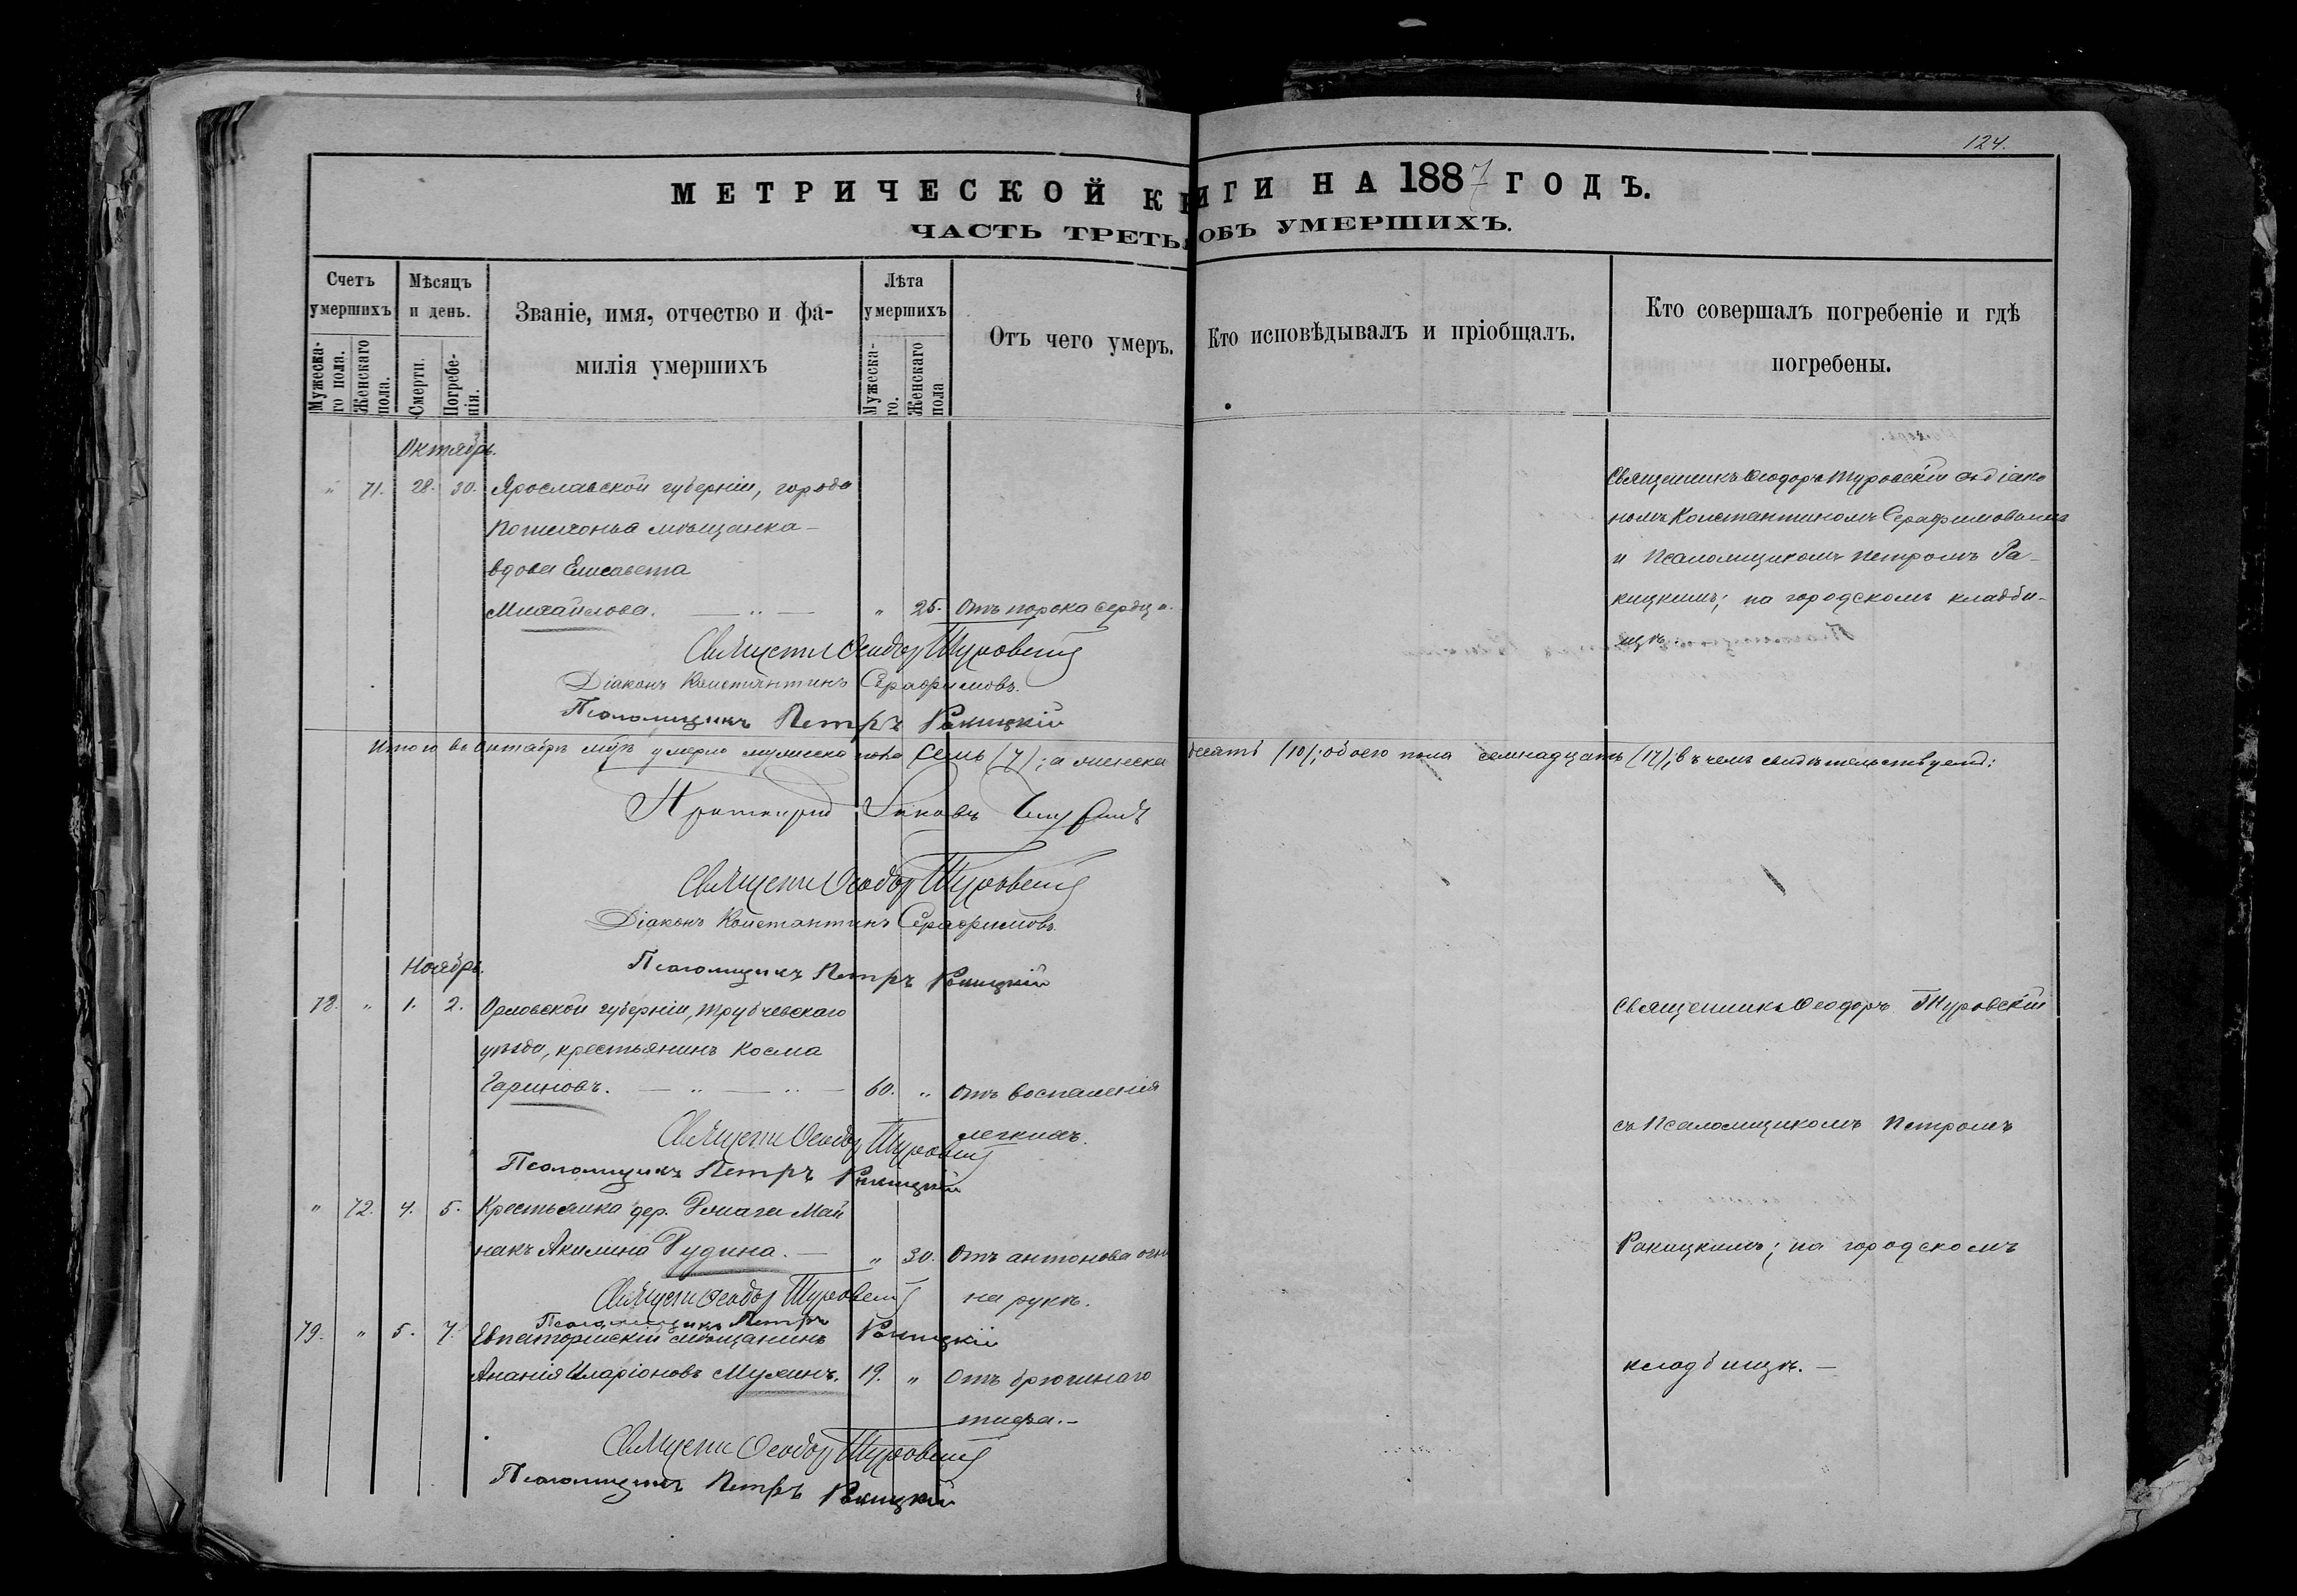 124.
МЕТРИЧЕСКОЙ КНИГИ НА 1887 ГОДЪ.
ЧАСТЬ ТРЕТЬЯ ОБЪ УМЕРШИХЪ.
Счетъ умершихъ
Мужеска-го пола.
Женскаго пола.
Мѣсяцъ и день.
Смерти.
Погребе-нія.
Званіе, имя, отчество и фа-
милія умершихъ
Лѣта умершихъ
Мужеска-го.
Женскаго пола
Отъ чего умеръ.
Кто исповѣдывалъ и пріобщалъ.
Кто совершалъ погребеніе и гдѣ
погребены.
Октябрь.
" 71. 28. 30. Ярославской губерніи, города
Пошехонья мѣщанка
вдова Елисавета
Михайлова. " 25. Отъ порока сердца.
Священникъ Ѳеодоръ Туровскій съ діако
номъ Константиномъ Серафимовымъ
и Псаломщикомъ Петромъ Ра-
кицкимъ; на городскомъ кладби-
щѣ.
Священникъ Ѳеодоръ Туровскій
Діаконъ Константинъ Серафимовъ.
Псаломщикъ Петръ Ракицкій
Итого въ Октябрѣ м-цѣ умерло мужеска пола Семь (7); а женска десять (10); обоего пола семнадцать (17); въ чемъ свидѣтельствуемъ:
Протоіерей Іаковъ
Священникъ Ѳеодоръ Туровскій
Діаконъ Константинъ Серафимовъ
Псаломщикъ Петръ Ракицкій
Ноябрь.
78. " 1. 2. Орловской губерніи, Трубчевскаго
уѣзда, крестьянинъ Косма
Гариновъ. 60. " Отъ воспаленія
легкихъ.
Священникъ Ѳеодоръ Туровскій
Псаломщикъ Петръ Ракицкій
Священникъ Ѳеодоръ Туровскій
съ Псаломщикомъ Петромъ
Ракицкимъ; на городскомъ
кладбищѣ. —
" 72. 4. 5. Крестьянка дер. Май
накъ Акилина Рудина. — " 30. Отъ антонова огня
на рукѣ.
Священникъ Ѳеодоръ Туровскій
Псаломщикъ Петръ Ракицкій
79. " 5. 7. Евпаторійскій мѣщанинъ
Ананія Иларіоновъ Мухинъ. 19. " Отъ брюшнаго
тифа. —
Священникъ Ѳеодоръ Туровскій
Псаломщикъ Петръ Ракицкій